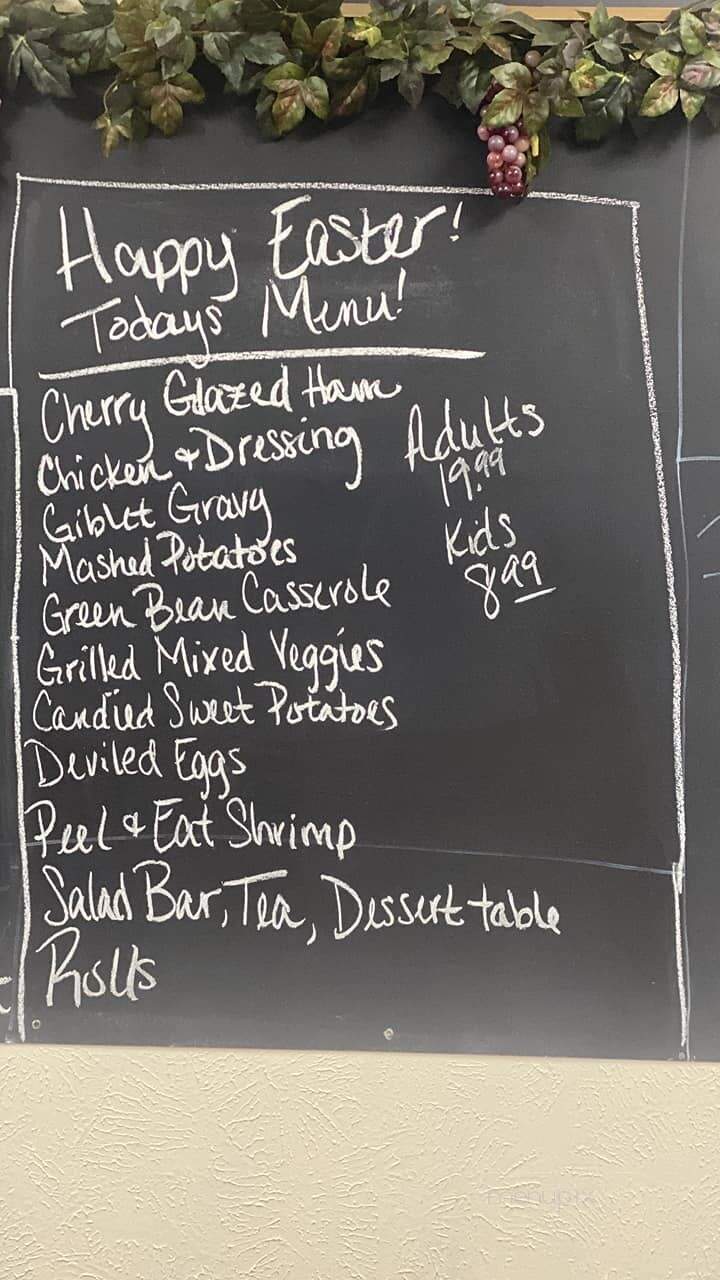 Happy Easter!
Todays Menu!
Cherry Glazed Ham
Chicken & Dressing
Giblet Gravy
Mashed Potatoes
Green Bean Casserole
Grilled Mixed Veggies
Candied Sweet Potatoes
Deviled Eggs
Peel & Eat Shrimp
Salad Bar, Tea, Dessert table
Rolls
Adults
19.99
Kids
8.99
menupix